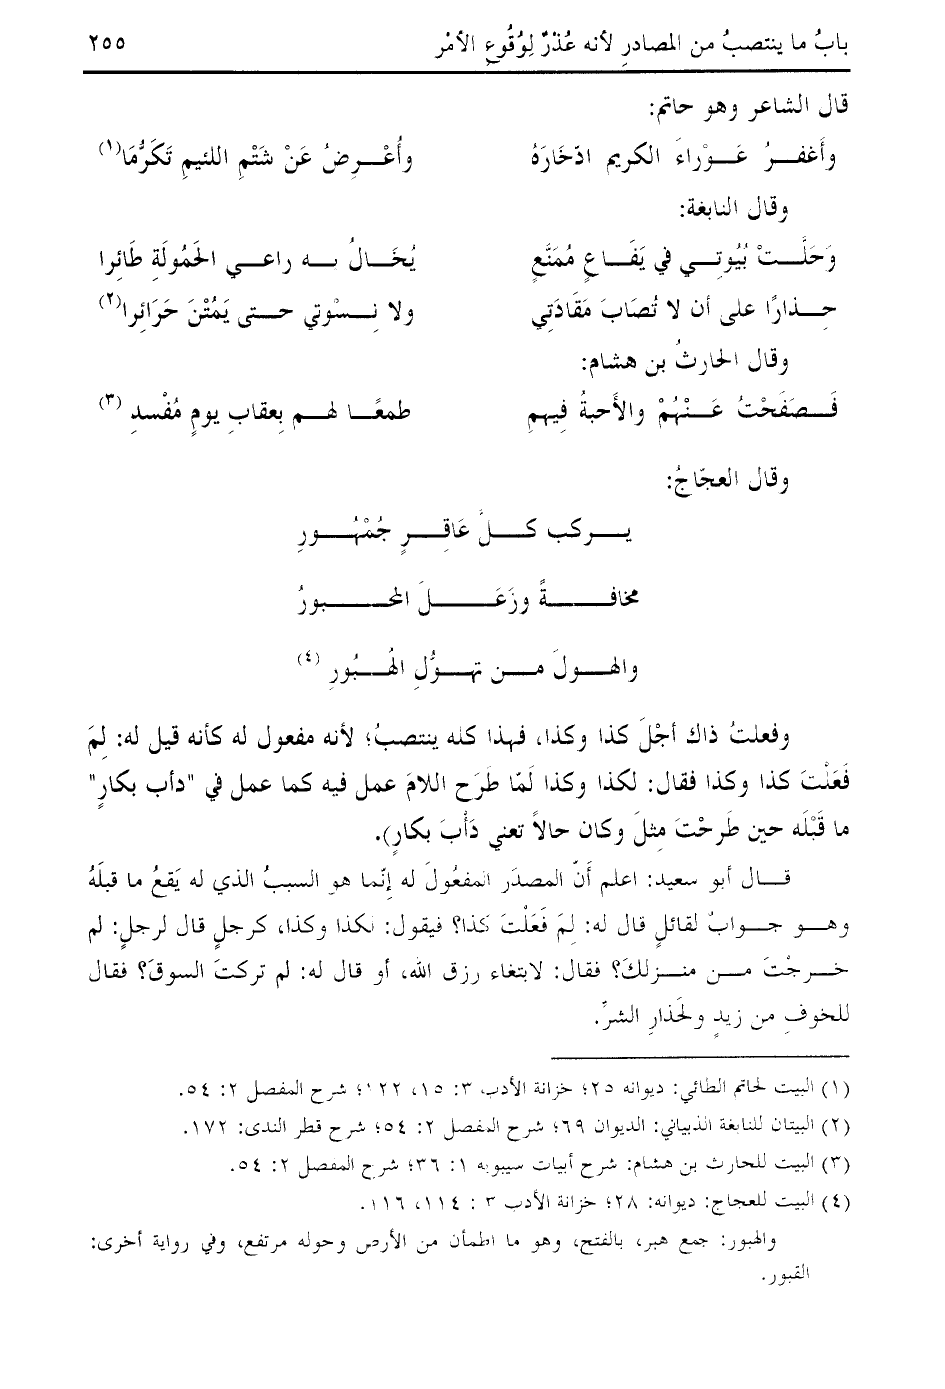 بابُ ما ينتصبُ من المصادرِ لأنه عُذْرٌ لِوُقُوعِ الأمْر ٢٥٥
قال الشاعر وهو حاتم:
وأَغفرُ عَوْراءَ الكريم ادّخَارَهُ وأُعْرِضُ عَنْ شَتْمِ اللئيمِ تَكَرُّمَا(١)
وقال النابغة:
وَحَلَّتْ بُيُوتِي في يَفَاعٍ مُمَنَّعٍ يُخَالُ به راعي الحَمُولَةِ طَائِرا
حِذارًا على أن لا تُصَابَ مَقَادَتِي ولا نِسْوتي حتى يَمُتْنَ حَرَائِرا(٢)
وقال الحارثُ بن هشام:
فَصَفَحْتُ عَنْهُمْ والأَحبةُ فِيهمِ طمعًا لهم بِعقابِ يومٍ مُفْسدِ (٣)
وقال العجّاجُ:
يركب كلَّ عَاقِرٍ جُمْهُورِ
مخافةً وزَعَلَ المحبورُ
والهولَ من تهوُّلِ الهُبُورِ (٤)
وفعلتُ ذاك أجْلَ كذا وكذا، فهذا كله ينتصبُ؛ لأنه مفعول له كأنه قيل له: لِمَ
فَعَلْتَ كذا وكذا فقال: لكذا وكذا لَمّا طَرَح اللامَ عمل فيه كما عمل في "دأب بكارٍ"
ما قَبْلَه حين طَرحْتَ مِثلَ وكان حالاً تعني دَأْبَ بكارٍ).
قال أبو سعيد: اعلم أَنّ المصدَر المفعُولَ له إنّما هو السببُ الذي له يَقعُ ما قبلَهُ
وهو جوابٌ لقائلٍ قال له: لِمَ فَعَلْتَ كذا؟ فيقول: لكذا وكذا، كرجلٍ قال لرجلٍ: لم
خرجْتَ من منزلكَ؟ فقال: لابتغاء رزق الله، أو قال له: لم تركتَ السوقَ؟ فقال
للخوفِ من زيدٍ ولحَذارِ الشرِّ.
(١) البيت لحاتم الطائي: ديوانه ٢٥؛ خزانة الأدب ٣: ١٥، ١٢٢؛ شرح المفصل ٢: ٥٤.
(٢) البيتان للنابغة الذبياني: الديوان ٦٩؛ شرح المفصل ٢: ٥٤؛ شرح قطر الندى: ١٧٢.
(٣) البيت للحارث بن هشام: شرح أبيات سيبويه ١: ٣٦؛ شرح المفصل ٢: ٥٤.
(٤) البيت للعجاج: ديوانه: ٢٨؛ خزانة الأدب ٣ : ١١٤، ١١٦.
والهبور: جمع هبر، بالفتح، وهو ما اطمأن من الأرض وحوله مرتفع، وفي رواية أخرى:
القبور.